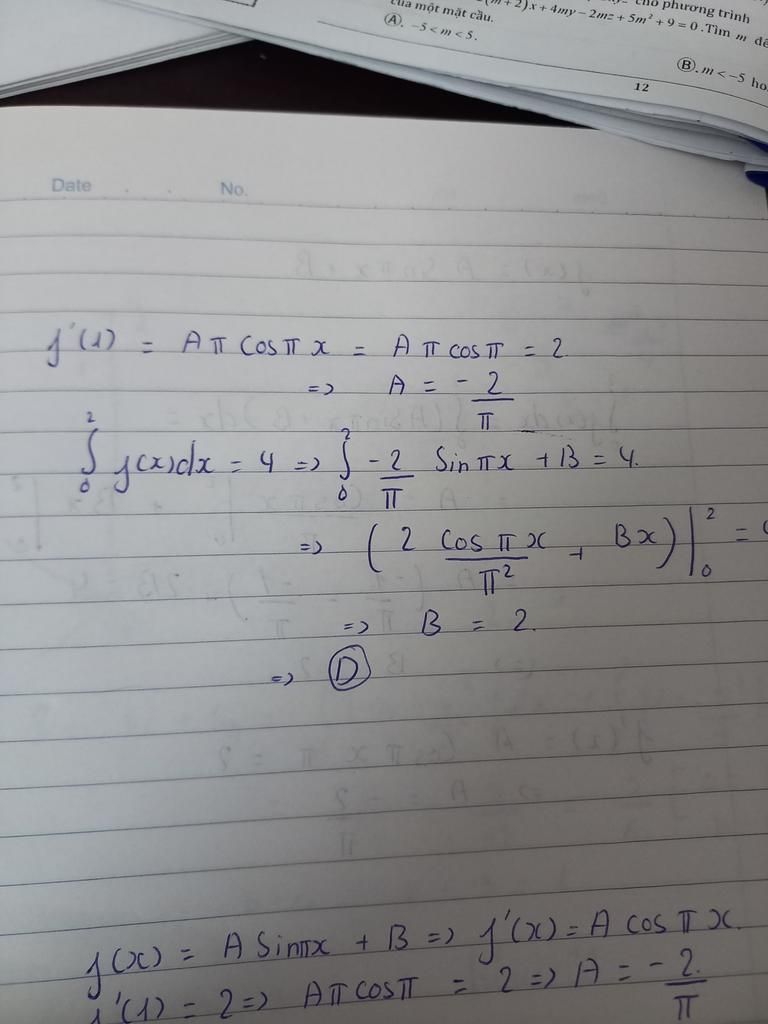 (m+2)x+4my−2mz+5m²+9=0.Tìm m để
cho phương trình
của một mặt cầu.
Ⓐ. −5<m<5.
Ⓑ. m<−5 ho
12
Date . . No.
f'(1) = Aπ cosπ x = Aπ cosπ = 2
=> A = - 2/π
∫₀² f(x)dx = 4 => ∫₀² -2/π Sinπx + B = 4.
=> (2 cos πx/π² + Bx)|₀² =
=> B = 2.
=> Ⓓ
f(x) = A Sinπx + B => f'(x) = A cos πx.
f'(1) = 2 => Aπcosπ = 2 => A = - 2/π